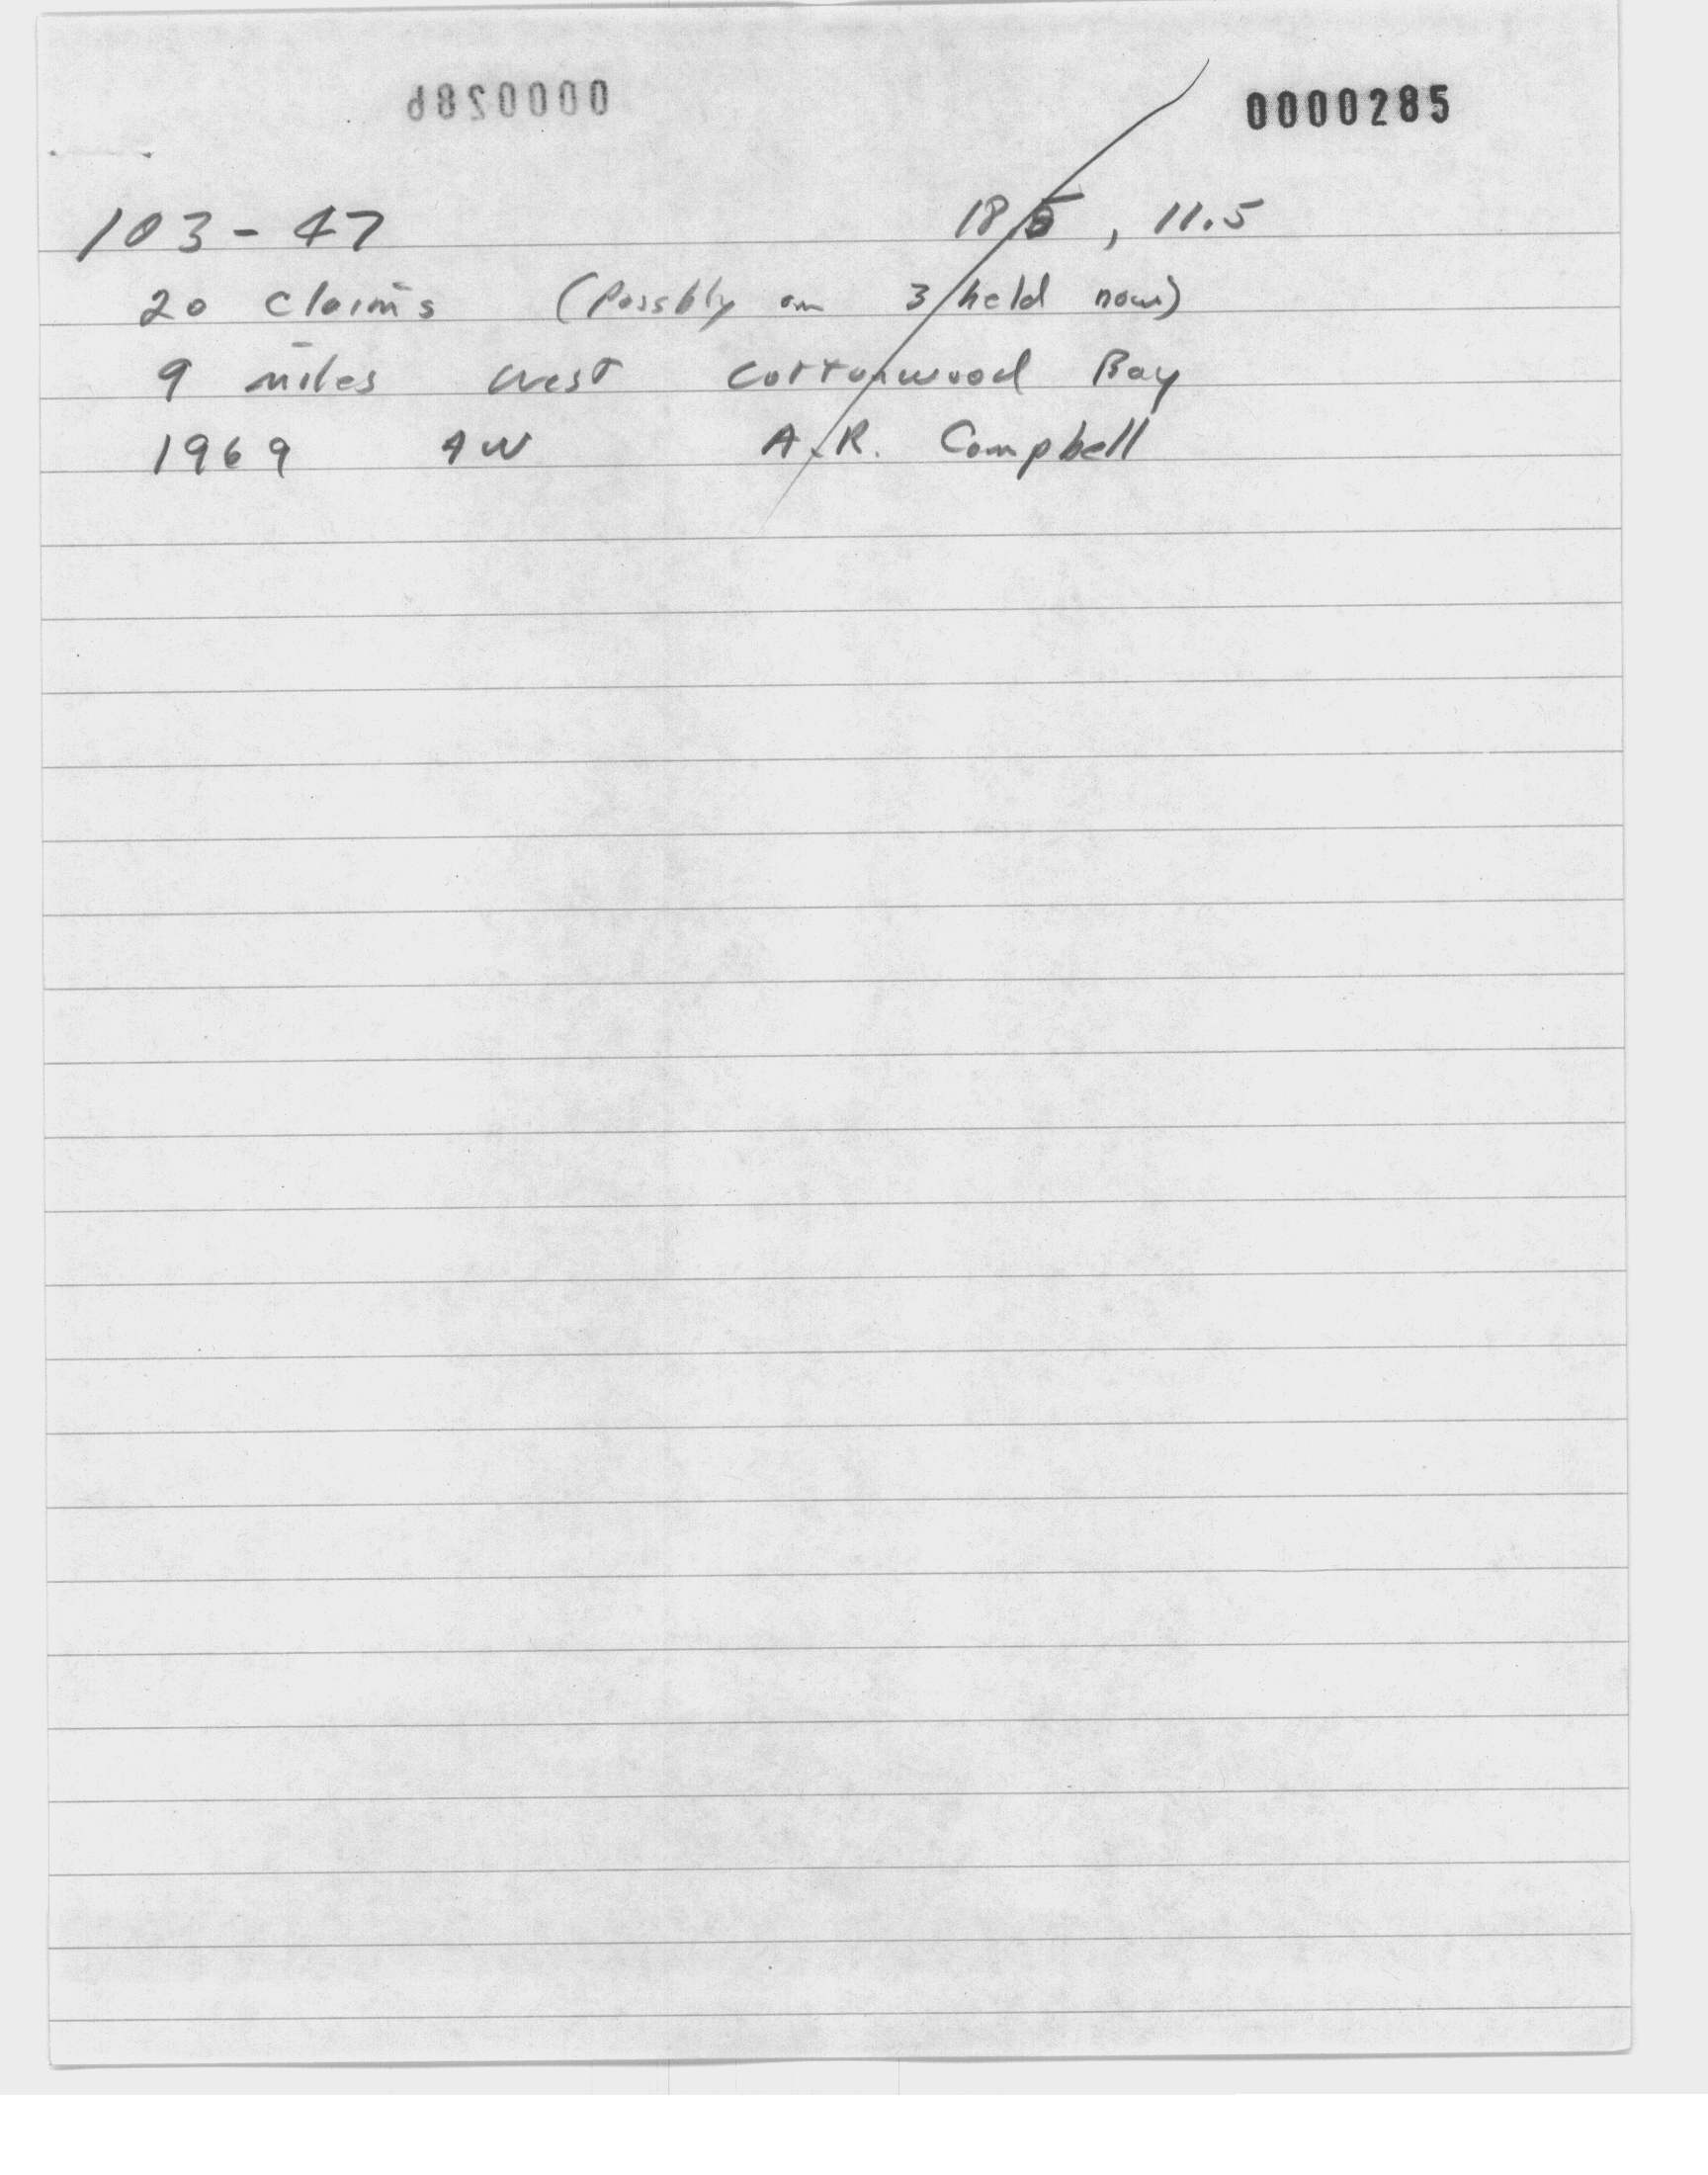 0000285
103-47 18.5, 11.5
20 claims (Possbly on 3 held now)
9 miles west Cottonwood Bay
1969 AW A.R. Campbell